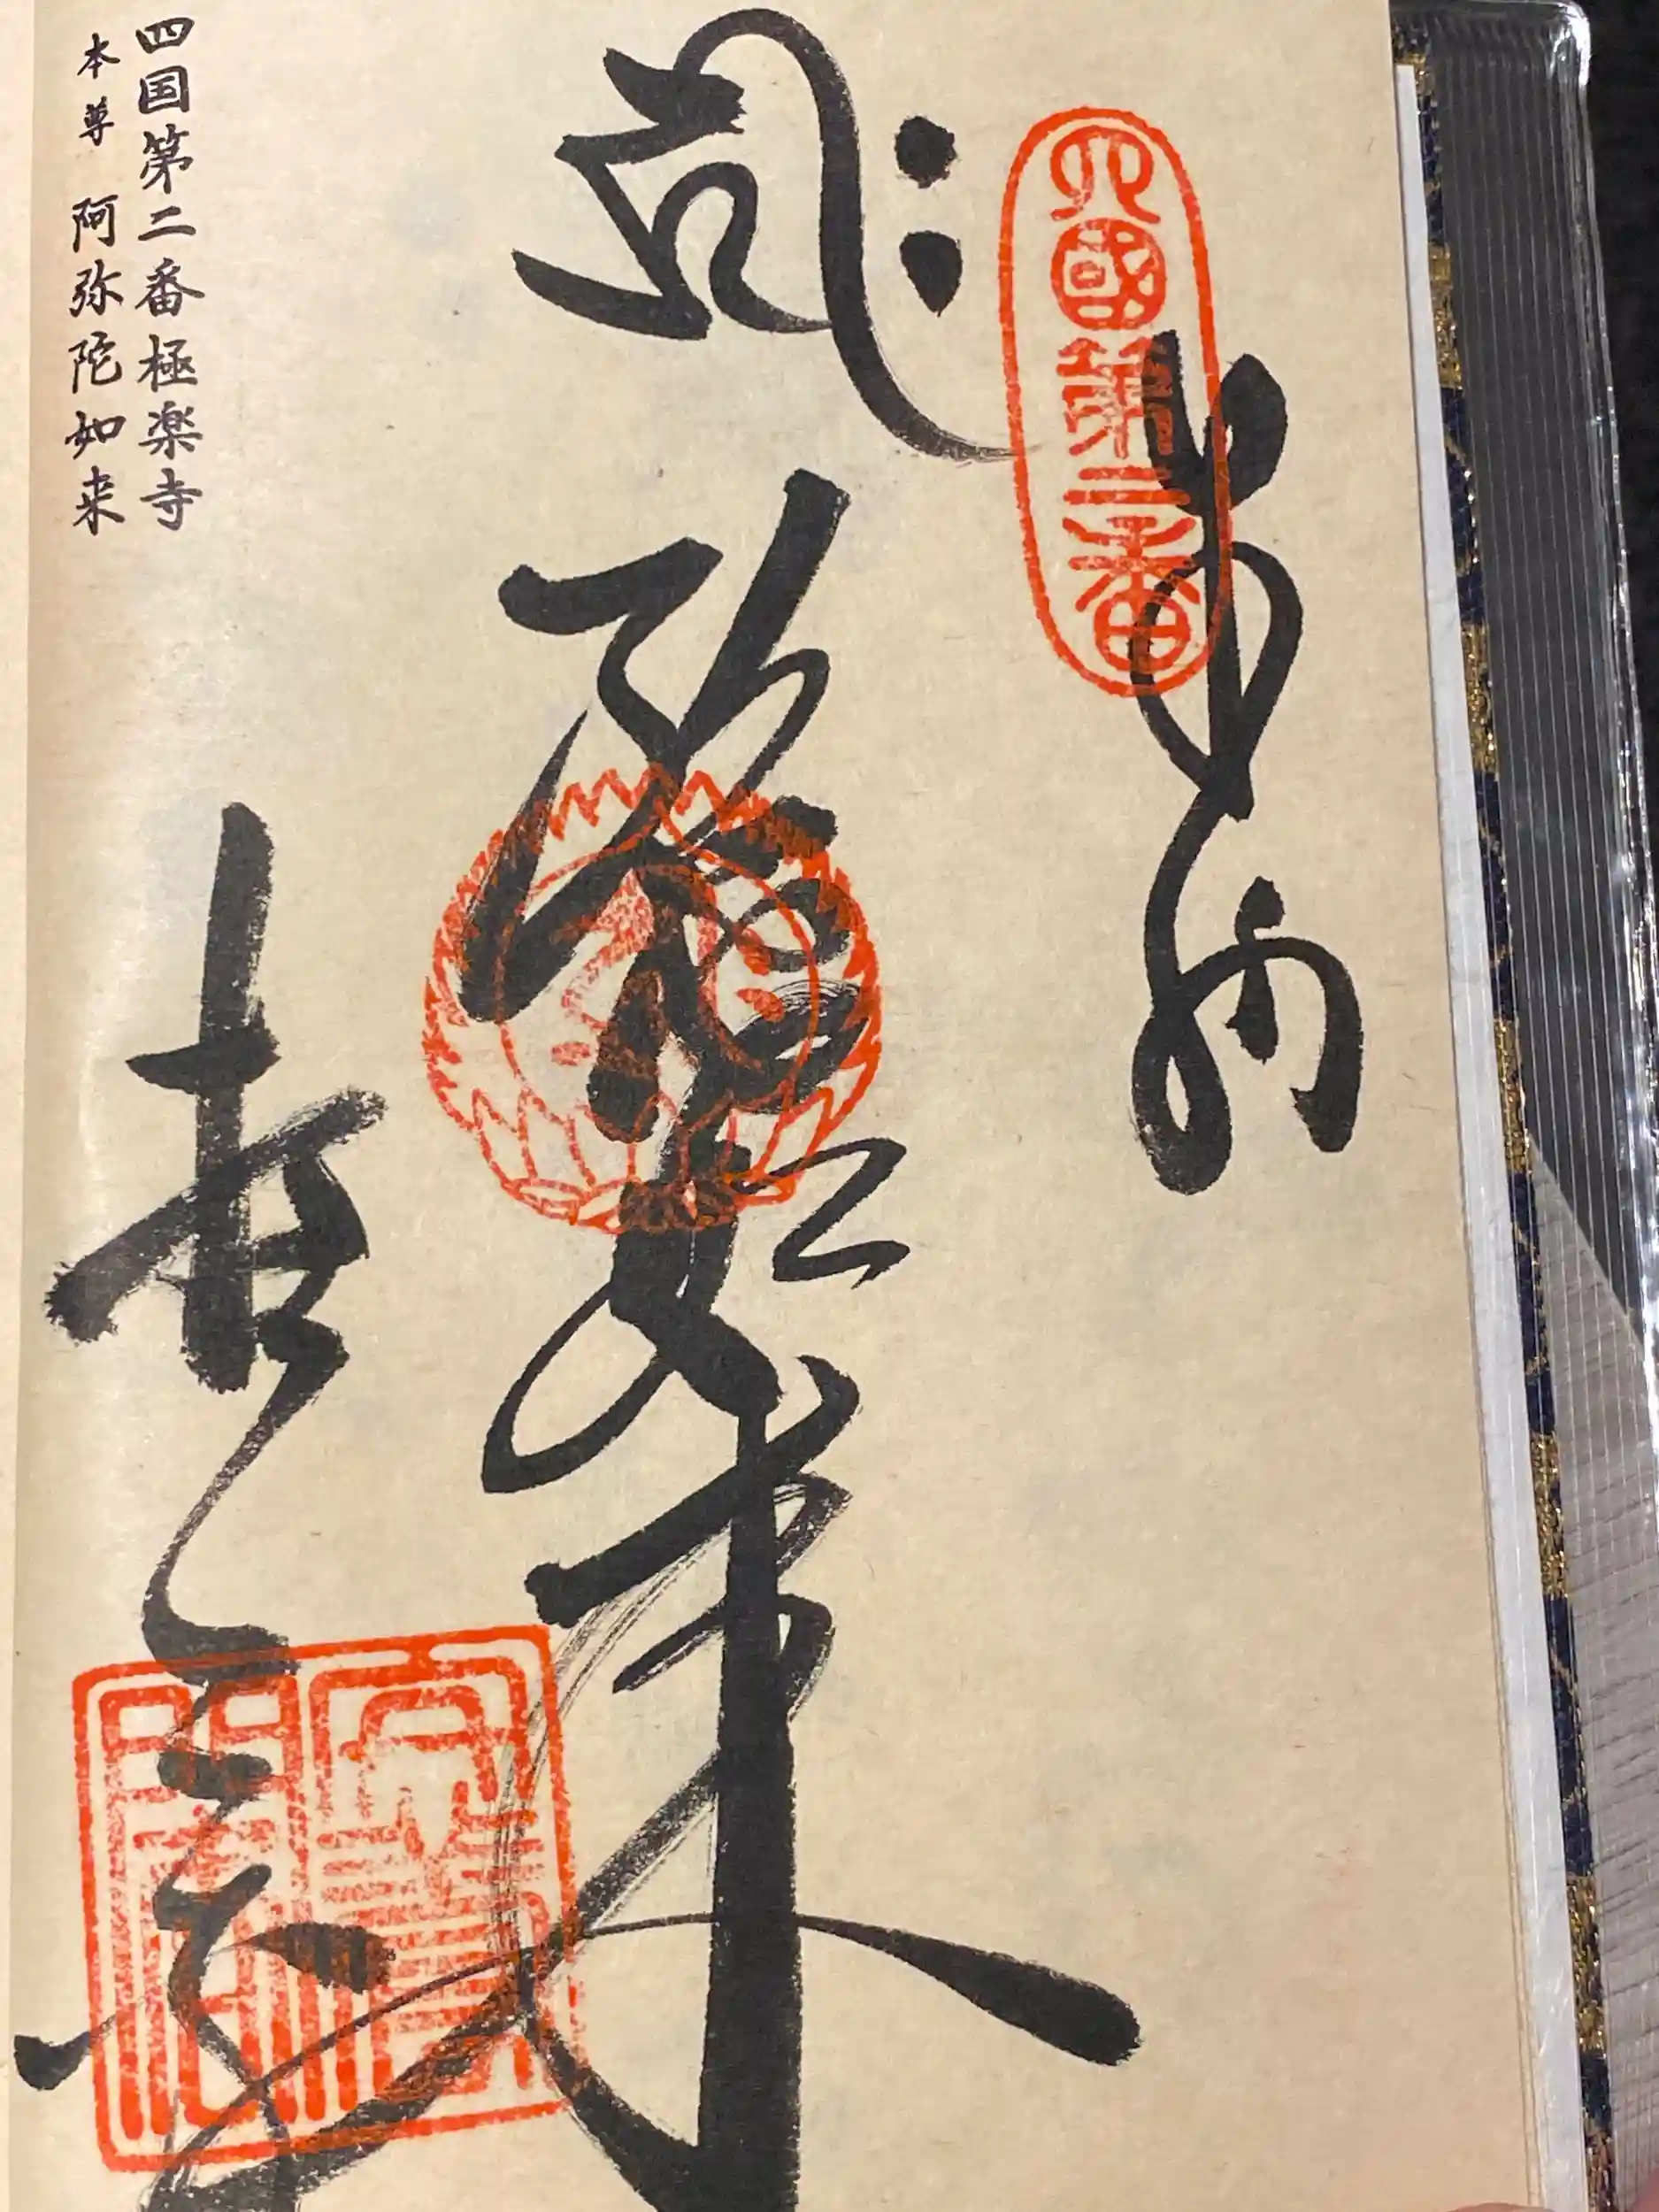 四國第二番
奉納
弥陀如来
四国第二番極楽寺
本尊 阿弥陀如来